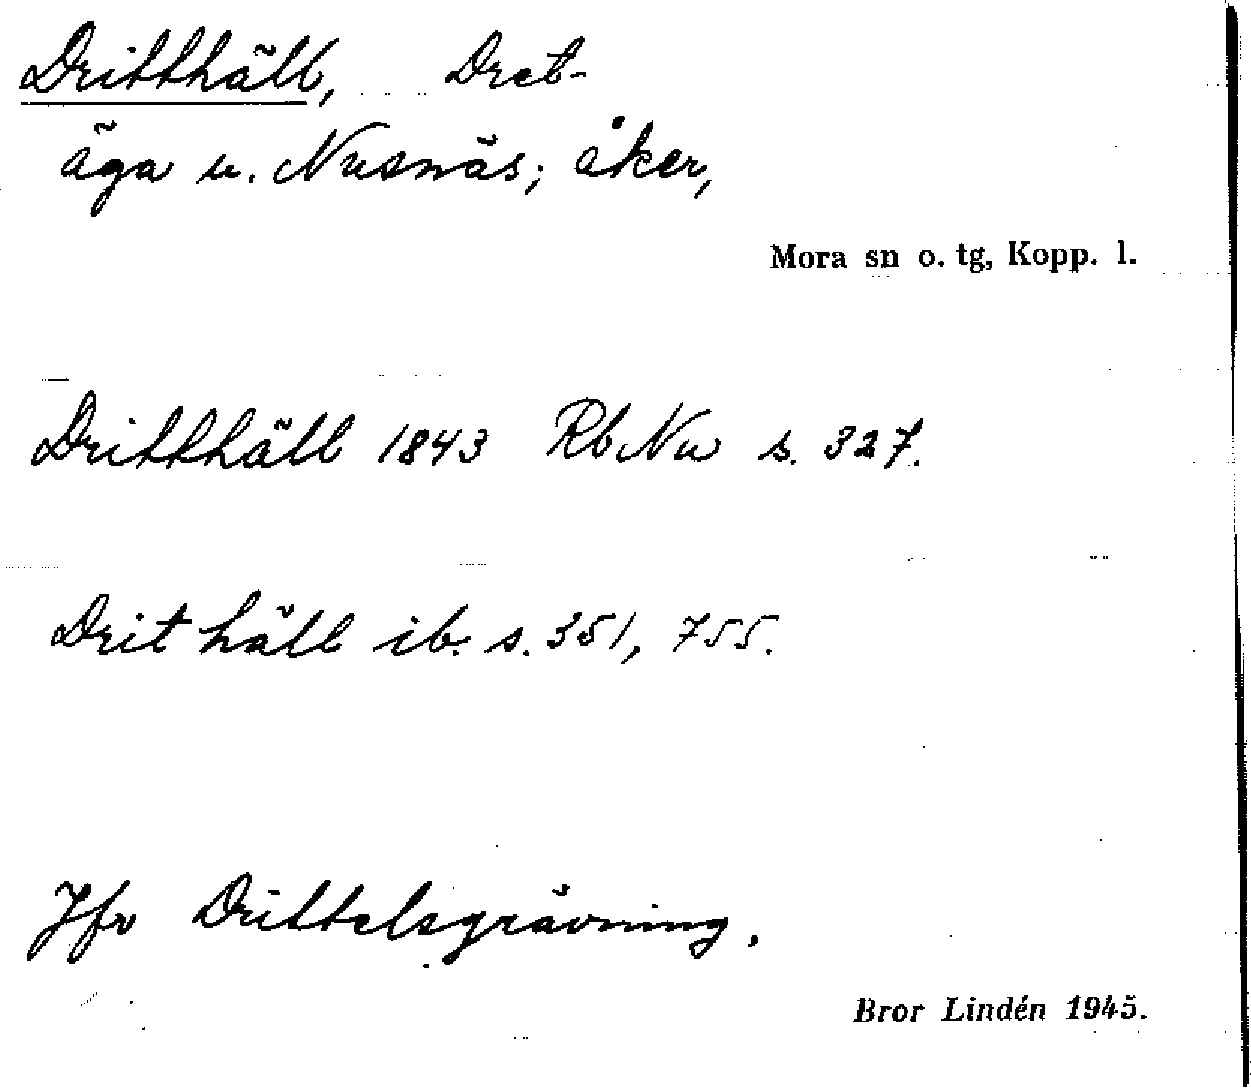 Dritthäll, Dret-
äga u. Nusnäs; åker,
Mora sn o. tg, Kopp. l.
Dritthäll 1843 Rb Nu s. 327.
Drit häll ib. s. 351, 755.
Jfr Drittelsgrävning.
Bror Lindén 1945.